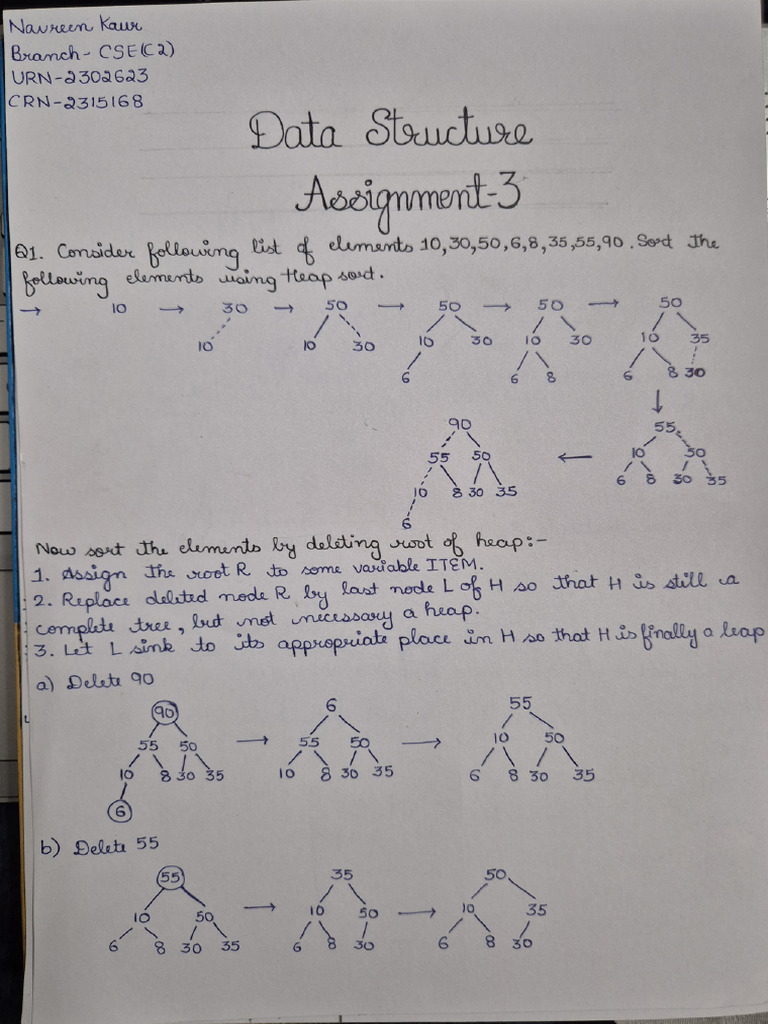 Navreen Kaur
Branch- CSE(C2)
URN-2302623
CRN-2315168
Data Structure
Assignment-3
Q1. Consider following list of elements 10,30,50,6,8,35,55,90. Sort the
following elements using Heap sort.
→ 10 → 30 → 50 → 50 → 50 → 50
10 10 30 10 30 10 30 10 35
6 6 8 6 8 30
↓
90 55
55 50 ← 10 50
10 8 30 35 6 8 30 35
6
Now sort the elements by deleting root of heap:-
1. Assign the root R to some variable ITEM.
2. Replace deleted node R by last node L of H so that H is still a
complete tree, but not necessary a heap.
3. Let L sink to its appropriate place in H so that H is finally a leap
a) Delete 90
90 6 55
55 50 → 55 50 → 10 50
10 8 30 35 10 8 30 35 6 8 30 35
6
b) Delete 55
55 35 50
10 50 → 10 50 → 10 35
6 8 30 35 6 8 30 6 8 30